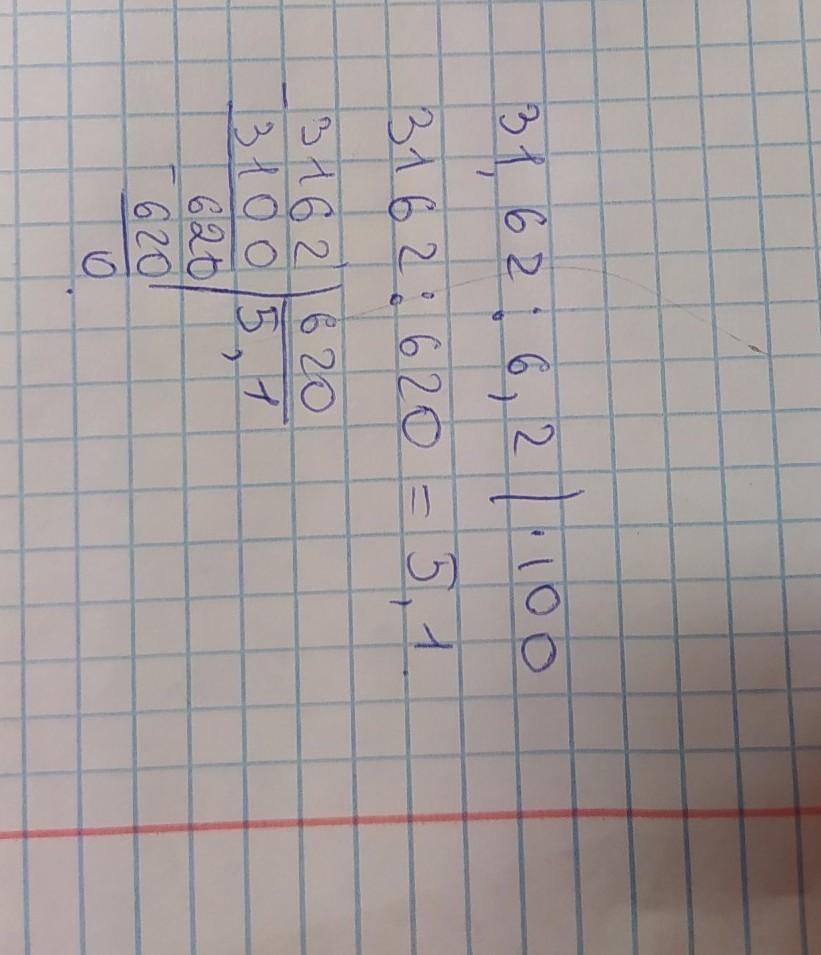 31,62 : 6,2 | ·100
3162 : 620 = 5,1
- 3162 | 620
3100 | 5,1
620
- 620
0